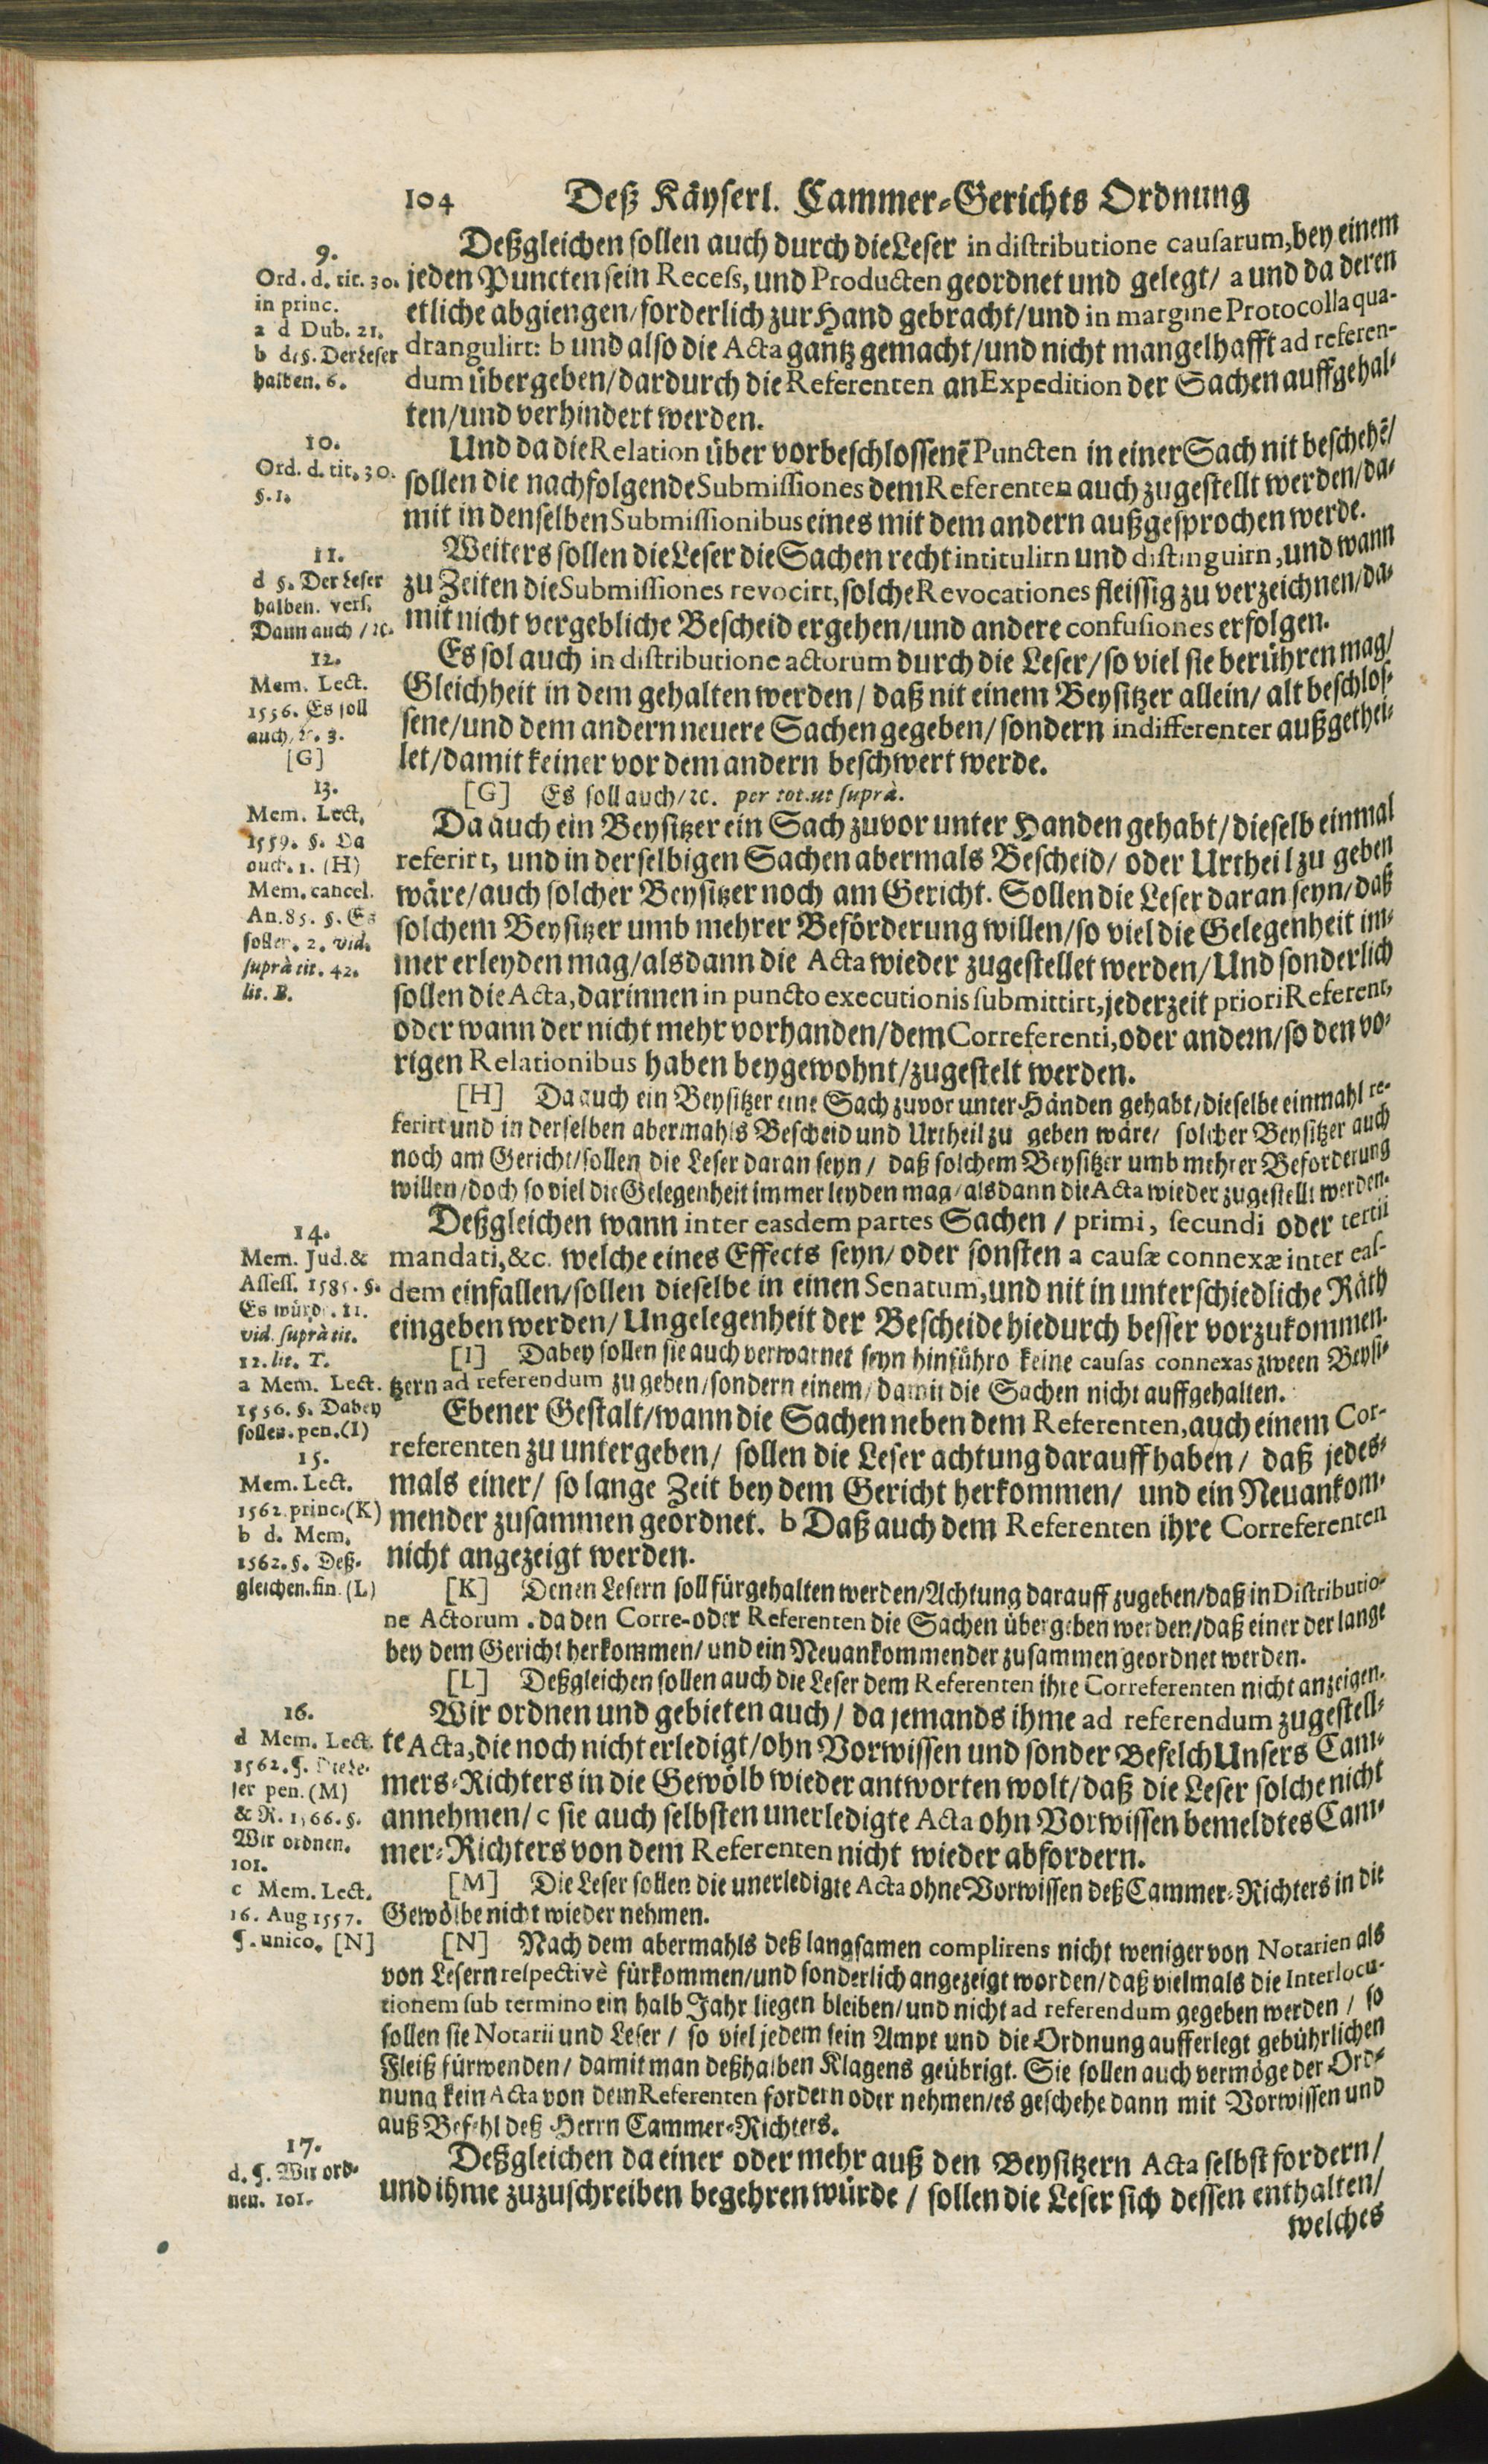 104 Deß Käyserl. Cammer-Gerichts Ordnung
9.
Ord. d. tit. 30.
in princ.
a d Dub. 21.
b d. §. Der Leser
halben. 6.
Deßgleichen sollen auch durch die Leser in distributione causarum, bey einem
jeden Puncten sein Recess, und Producten geordnet und gelegt/ a und da deren
etliche abgiengen/ forderlich zur Hand gebracht/ und in margine Protocolla qua-
drangulirt: b und also die Acta gantz gemacht/ und nicht mangelhafft ad referen-
dum übergeben/ dardurch die Referenten an Expedition der Sachen auffgehal-
ten/ und verhindert werden.
10.
Ord. d. tit. 30.
§. 1.
Und da die Relation über vorbeschlossenẽ Puncten in einer Sach nit beschehẽ/
sollen die nachfolgende Submissiones dem Referenten auch zugestellt werden/ da-
mit in denselben Submissionibus eines mit dem andern außgesprochen werde.
11.
d §. Der Leser
halben. vers.
Dann auch / ꝛc.
Weiters sollen die Leser die Sachen recht intitulirn und distinguirn, und wann
zu Zeiten die Submissiones revocirt, solche Revocationes fleissig zu verzeichnen/ da-
mit nicht vergebliche Bescheid ergehen/ und andere confusiones erfolgen.
12.
Mem. Lect.
1556. Es soll
auch, ꝛc. 3.
[G]
Es sol auch in distributione actorum durch die Leser/ so viel sie berühren mag/
Gleichheit in dem gehalten werden/ daß nit einem Beysitzer allein/ alt beschlos-
sene/ und dem andern neuere Sachen gegeben/ sondern indifferenter außgethei-
let/ damit keiner vor dem andern beschwert werde.
[G] Es soll auch/ ꝛc. per tot. ut suprà.
13.
Mem. Lect.
1559. §. Da
auch. 1. (H)
Mem. cancel.
An. 85. §. Es
sollen. 2. vid.
suprà tit. 42.
lit. B.
Da auch ein Beysitzer ein Sach zuvor unter Handen gehabt/ dieselb einmal
referirt, und in derselbigen Sachen abermals Bescheid/ oder Urtheil zu geben
wäre/ auch solcher Beysitzer noch am Gericht. Sollen die Leser daran seyn/ daß
solchem Beysitzer umb mehrer Beförderung willen/ so viel die Gelegenheit im-
mer erleyden mag/ alsdann die Acta wieder zugestellet werden/ Und sonderlich
sollen die Acta, darinnen in puncto executionis submittirt, jederzeit priori Referent,
oder wann der nicht mehr vorhanden/ dem Correferenti, oder andern/ so den vo-
rigen Relationibus haben beygewohnt/ zugestelt werden.
[H] Da auch ein Beysitzer eine Sach zuvor unter Händen gehabt/ dieselbe einmahl re-
ferirt und in derselben abermahls Bescheid und Urtheil zu geben wäre/ solcher Beysitzer auch
noch am Gericht/ sollen die Leser daran seyn/ daß solchem Beysitzer umb mehrer Beforderung
willen/ doch so viel die Gelegenheit immer leyden mag/ alsdann die Acta wieder zugestellt werden.
14.
Mem. Jud. &
Assess. 1585. §.
Es würd. 11.
vid. suprà tit.
12. lit. T.
a Mem. Lect.
1556. §. Dabey
sollen. pen. (I)
Deßgleichen wann inter easdem partes Sachen / primi, secundi oder tertii
mandati, &c. welche eines Effects seyn/ oder sonsten a causæ connexæ inter eas-
dem einfallen/ sollen dieselbe in einen Senatum, und nit in unterschiedliche Räth
eingeben werden/ Ungelegenheit der Bescheide hiedurch besser vorzukommen.
[I] Dabey sollen sie auch verwarnet seyn hinführo keine causas connexas zween Beysi-
tzern ad referendum zu geben/ sondern einem/ damit die Sachen nicht auffgehalten.
15.
Mem. Lect.
1562. princ. (K)
b d. Mem.
1562. §. Deß-
gleichen. fin. (L)
Ebener Gestalt/ wann die Sachen neben dem Referenten, auch einem Cor-
referenten zu untergeben/ sollen die Leser achtung darauff haben/ daß jedes-
mals einer/ so lange Zeit bey dem Gericht herkommen/ und ein Neuankom-
mender zusammen geordnet. b Daß auch dem Referenten ihre Correferenten
nicht angezeigt werden.
[K] Denen Lesern soll fürgehalten werden/ Achtung darauff zugeben/ daß in Distributio-
ne Actorum. da den Corre- oder Referenten die Sachen übergeben werden/ daß einer der lange
bey dem Gericht herkommen/ und ein Neuankommender zusammen geordnet werden.
[L] Deßgleichen sollen auch die Leser dem Referenten ihre Correferenten nicht anzeigen.
16.
d Mem. Lect.
1562. ¶. Die Le-
ser pen. (M)
& R. 1566. §.
Wir ordnen.
101.
c Mem. Lect.
16. Aug 1557.
¶. unico. [N]
Wir ordnen und gebieten auch/ da jemands ihme ad referendum zugestell-
te Acta, die noch nicht erledigt/ ohn Vorwissen und sonder Befelch Unsers Cam-
mers-Richters in die Gewölb wieder antworten wolt/ daß die Leser solche nicht
annehmen/ c sie auch selbsten unerledigte Acta ohn Vorwissen bemeldtes Cam-
mer-Richters von dem Referenten nicht wieder abfordern.
[M] Die Leser sollen die unerledigte Acta ohne Vorwissen deß Cammer-Richters in die
Gewölbe nicht wieder nehmen.
[N] Nach dem abermahls deß langsamen complirens nicht weniger von Notarien als
von Lesern respectivè fürkommen/ und sonderlich angezeigt worden/ daß vielmals die Interlocu-
tionem sub termino ein halb Jahr liegen bleiben/ und nicht ad referendum gegeben werden / so
sollen sie Notarii und Leser / so viel jedem sein Ampt und die Ordnung aufferlegt gebührlichen
Fleiß fürwenden/ damit man deßhalben Klagens geübrigt. Sie sollen auch vermöge der Ord-
nung kein Acta von dem Referenten fordern oder nehmen/ es geschehe dann mit Vorwissen und
auß Befehl deß Herrn Cammer-Richters.
17.
d. ¶. Wir ord-
nen. 101.
Deßgleichen da einer oder mehr auß den Beysitzern Acta selbst fordern/
und ihme zuzuschreiben begehren würde / sollen die Leser sich dessen enthalten/
welches